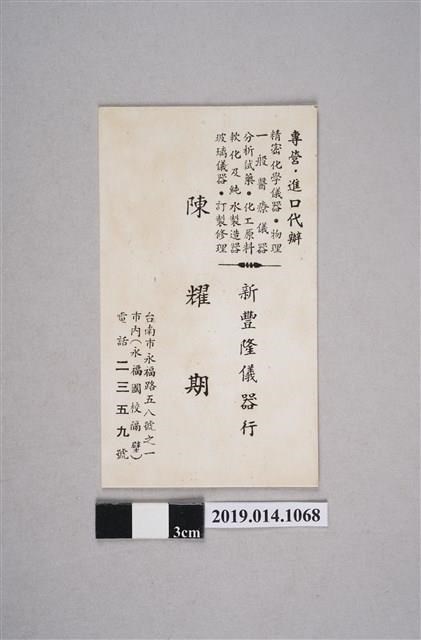 專營・進口代辦
精密化學儀器・物理
一般醫療儀器
分析試藥・化工原料
軟化及純水製造器
玻璃儀器・訂製修理
新豐隆儀器行
陳耀期
台南市永福路五八號之一
市內(永福國校隔壁)
電話二三五九號
3cm
2019.014.1068